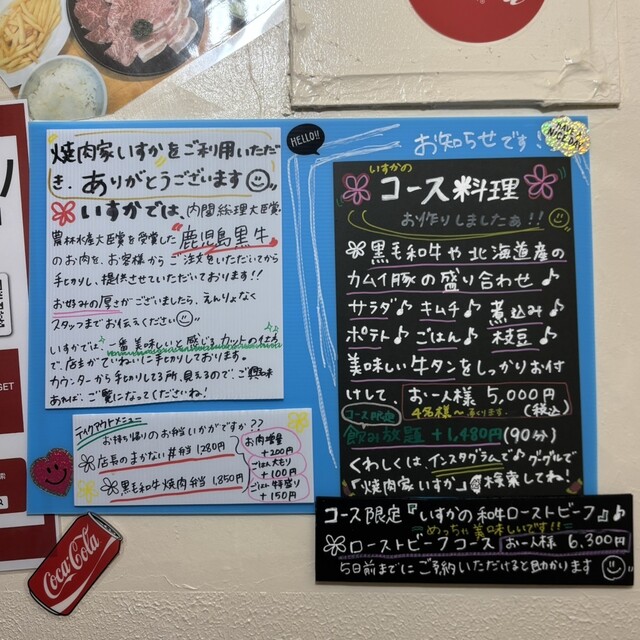 焼肉家いすかをご利用いただ
き、ありがとうございます
いすかでは、内閣総理大臣賞、
農林水産大臣賞を受賞した"鹿児島黒牛"
のお肉を、お客様からご注文をいただいてから
手切りし、提供させていただいております!!
お好みの厚さがございましたら、えんりょなく
スタッフまでお伝えください
いすかでは、一番美味しいと感じるカットの仕方
で、店主がていねいに手切りしております。
カウンターから手切りしてる所、見えるので、ご興味
あれば、ご覧になってくださいね!
テイクアウトメニュー
お持ち帰りのお弁当いかがですか??
店長のまかない丼弁当 1,280円
黒毛和牛焼肉弁当 1,850円
お肉増量
+200円
ごはん大もり
+100円
ごはん特盛り
+150円
HELLO!!
お知らせです、
HAVE A NICE DAY
いすかの
コース料理
お作りしましたぁ!!
黒毛和牛や北海道産の
カムイ豚の盛り合わせ♪
サラダ♪キムチ♪煮込み♪
ポテト♪ごはん♪枝豆♪
美味しい牛タンをしっかりお付
けして、お一人様 5,000円
4名様〜承ります。(税込)
コース限定
飲み放題 +1,480円(90分)
くわしくは、インスタグラムで♪グーグルで
「焼肉家いすか」検索してね!
コース限定『いすかの和牛ローストビーフ』♪
めっちゃ美味しいです!!
ローストビーフコース お一人様 6,300円
5日前までにご予約いただけると助かります
Coca-Cola